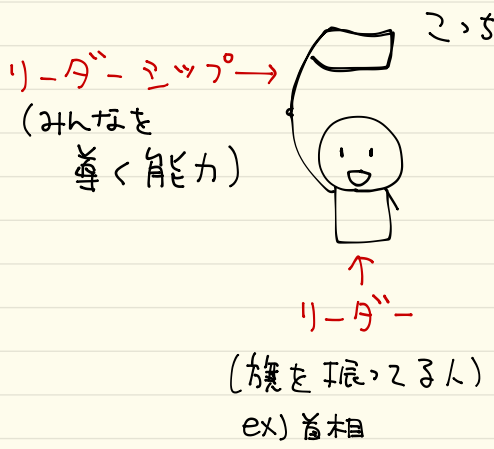 こっち
リーダーシップ→
(みんなを
導く能力)
↑
リーダー
(旗を振ってる人)
ex) 首相